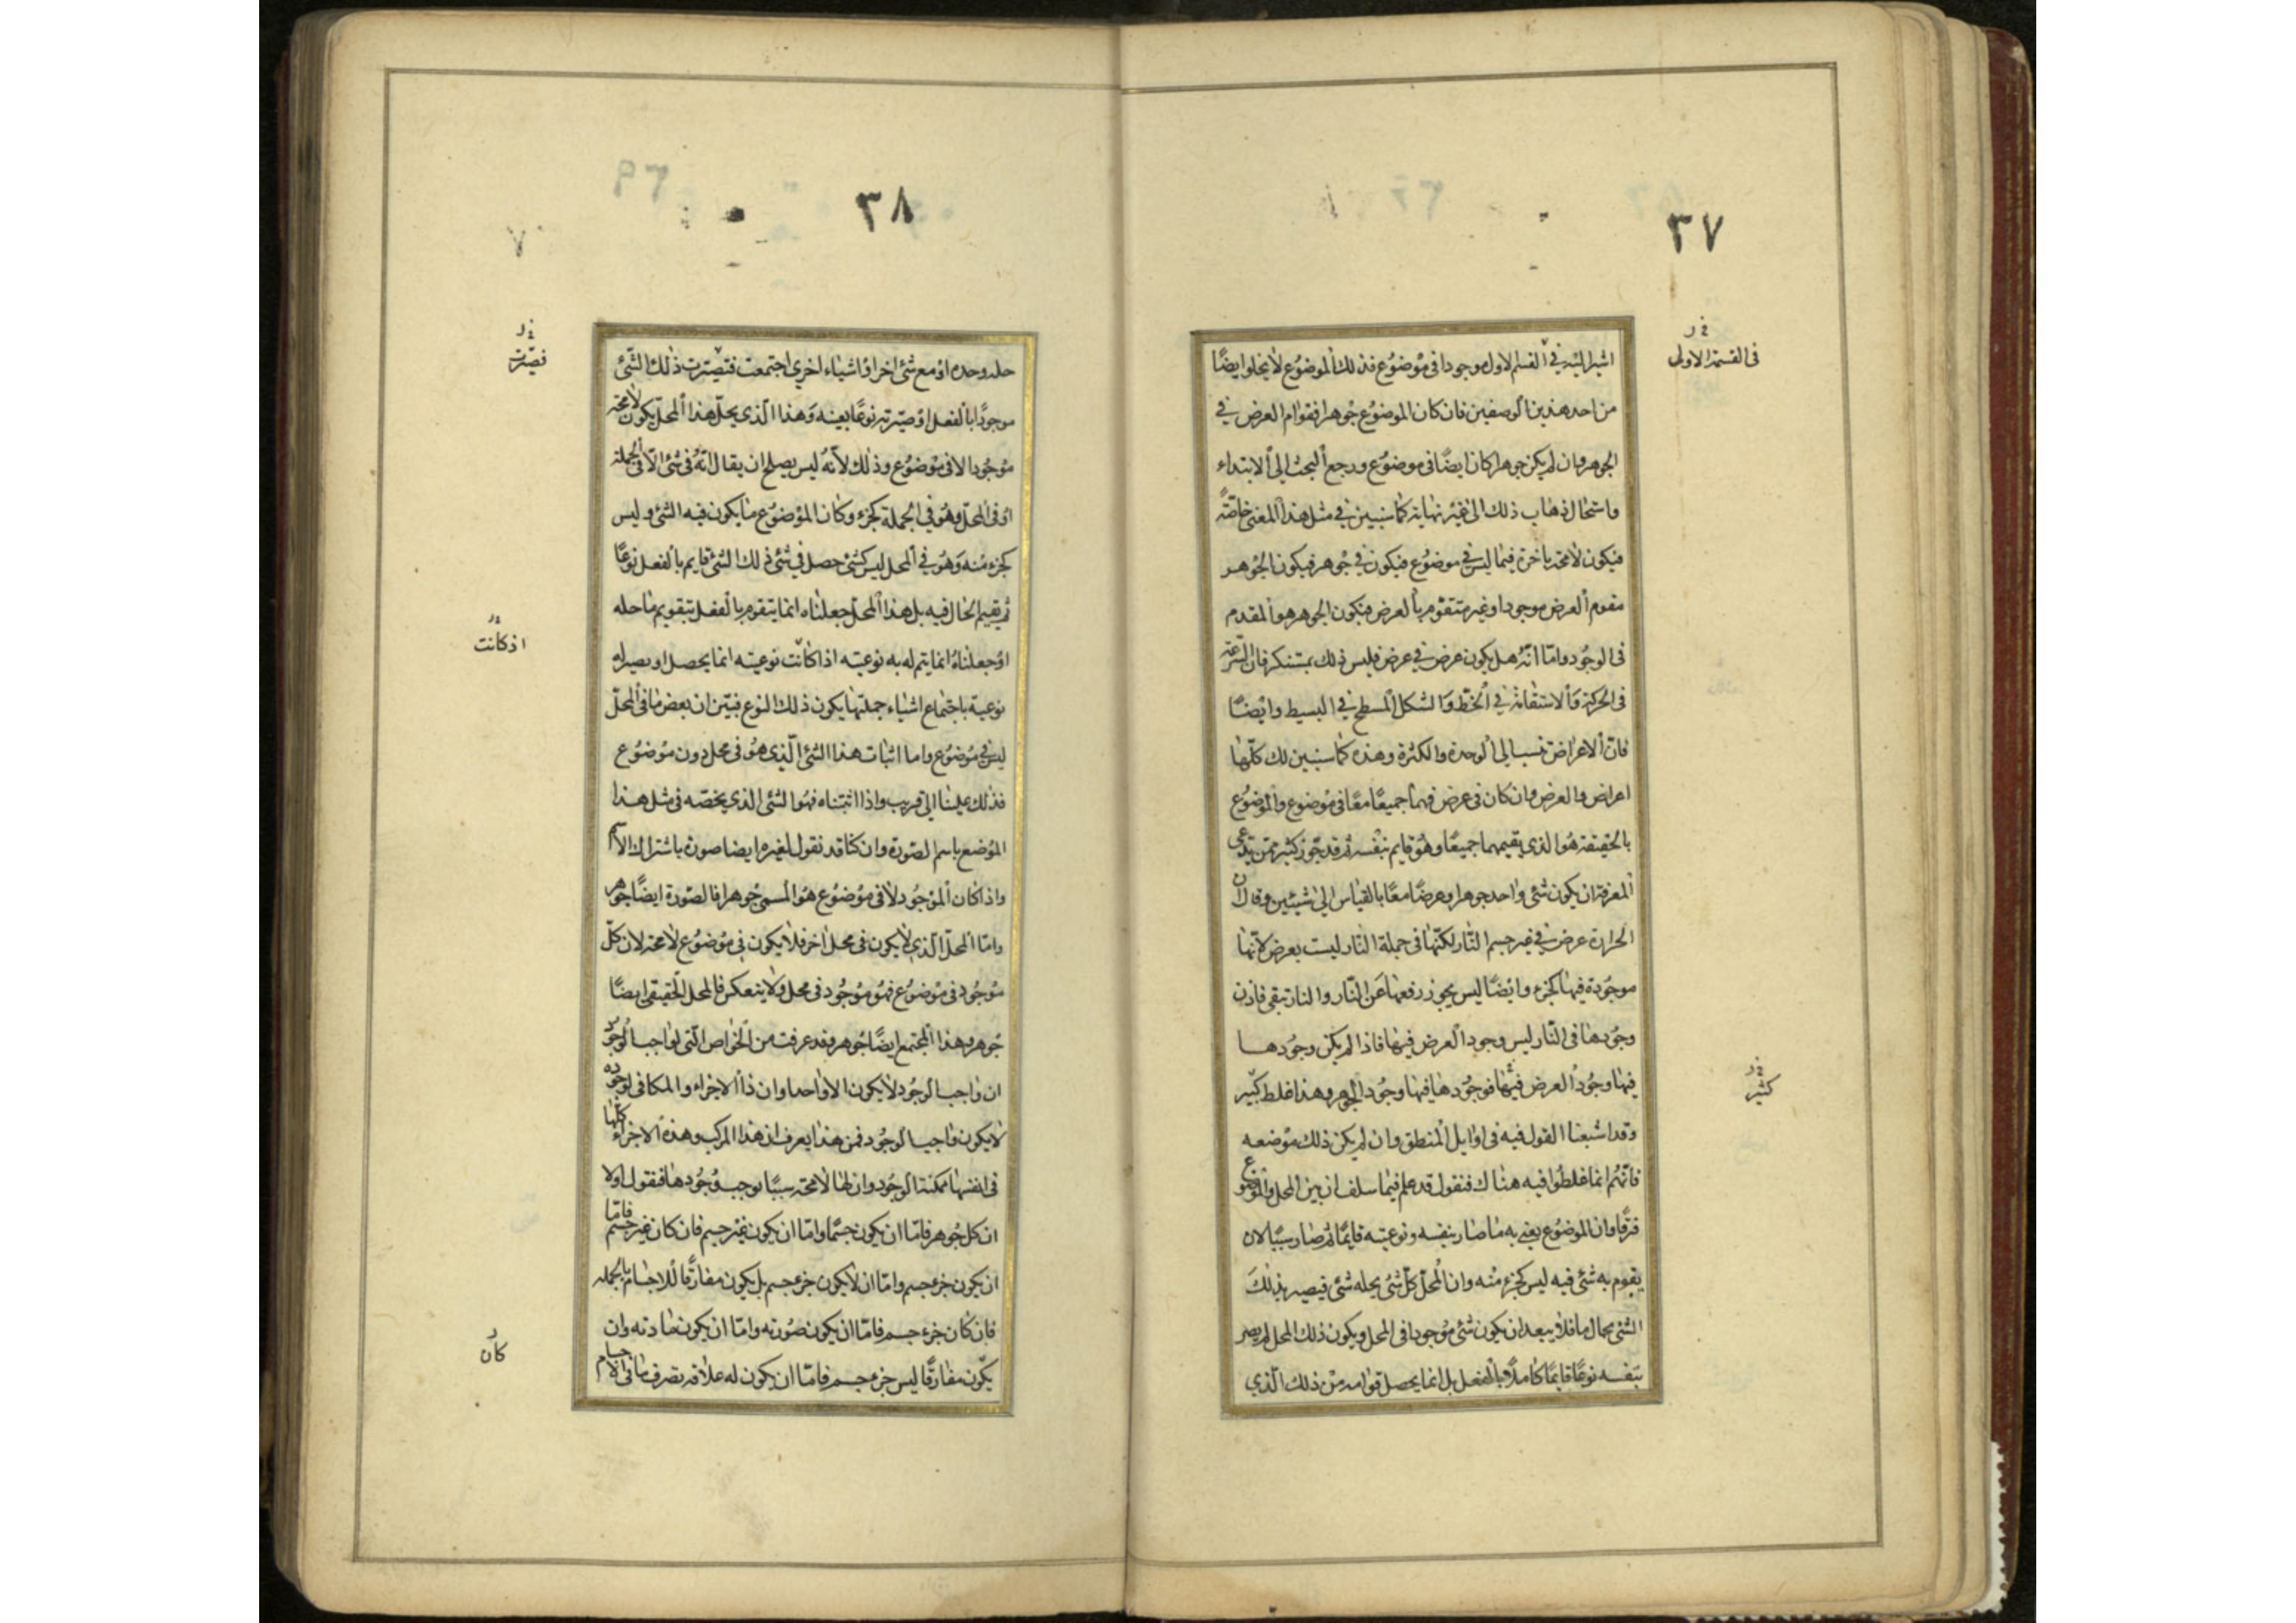 ٣٧
في القسمة الاولى
اشير اليه في القسم الاول موجودا في موضوع فذلك الموضوع لا يخلو ايضًا
من احد هذين الوصفين فان كان الموضوع جوهرا فقوام العرض في
الجوهر وان لم يكن جوهرا كان ايضًا في موضوع ورجع البحث الى الابتداء
واستحال ذهاب ذلك الى غير نهاية كما سنبين في مثل هذا المعنى خاصّة
فيكون لا محة باخرة فيما ليس في موضوع فيكون في جوهر فيكون الجوهر
مقوم العرض موجودا وغير متقوم بالعرض فيكون الجوهر هو المقدم
في الوجود وامّا انّه هل يكون عرض في عرض فليس ذلك بمستنكر فان السّرعة
في الحركة والاستقامة في الخطّ والشكل المسطح في البسيط وايضًا
فانّ الاعراض تنسب الى الوحدة والكثرة وهذه كما سنبين لك كلّها
اعراض والعرض وان كان في عرض فهما جميعًا معًا في موضوع والموضوع
بالحقيقة هو الذي يقيمهما جميعًا وهو قايم بنفسه ثم قد جوّز كثير ممن يدّعي
المعرفة ان يكون شئ واحد جوهرا وعرضًا معًا بالقياس الى شيئين وقال ان
الحرارة عرض في غير جسم النّار لكنّها في جملة النّار ليست بعرض لانّها
موجودة فيها كجزء وايضًا ليس يجوز رفعها عن النّار والنار تبقى فاذن
وجودها في النّار ليس وجود العرض فيها فاذا لم يكن وجودها
فيها وجود العرض فيها فوجودها فيها وجود الجوهر وهذا غلط كبير
كثير
وقد اشبعنا القول فيه في اوايل المنطق وان لم يكن ذلك موضعه
فانّهم انما غلطوا فيه هناك فنقول قد علم فيما سلف ان بين المحل والموضوع
فرقًا وان الموضوع يعنى به ما صار بنفسه ونوعيته قايمًا ثم صار سببًا لان
يقوم به شئ فيه ليس كجزء منه وان المحلّ كلّ شئ يحله شئ فيصير بذلك
الشئ بحال ما فلا يبعد ان يكون شئ موجودا في المحل ويكون ذلك المحل لم يصر
بنفسه نوعًا قايمًا كاملًا بالفعل بل انما يحصل قوامه من ذلك الّذي
٣٨
٧
حله وحده او مع شئ اخر او اشياء اخرى اجتمعت فتصيّرت ذلك الشّئ
فصيّرت
موجودًا بالفعل او صيّرته نوعًا بعينه وهذا الّذي يحلّ هذا المحلّ يكون لا محة
موجودا لا في موضوع وذلك لانّه ليس يصلح ان يقال انّه في شئ الّا في الجملة
او في المحلّ وهو في الجملة كجزء وكان الموضوع ما يكون فيه الشئ وليس
كجزء منه وهو في المحل ليس كشئ حصل في شئ ذلك الشئ قايم بالفعل نوعًا
ثم يقيم الحال فيه بل هذا المحلّ جعلناه انما يتقوم بالفعل بتقويم ما حله
او جعلناه انما يتم له به نوعيته اذا كانت نوعيته انما يحصل او يصير له
اذ كانت
نوعية باجتماع اشياء جملتها يكون ذلك النوع فبيّن ان بعض ما في المحلّ
ليس في موضوع واما اثبات هذا الشئ الّذي هو في محل دون موضوع
فذلك علينا الى قريب واذا اثبتناه فهو الشئ الذي يخصّه في مثل هذا
الموضع باسم الصّورة وان كنّا قد نقول لغيره ايضا صورة باشتراك الاسم
واذا كان الموجود لا في موضوع هو المسمى جوهرا فالصّورة ايضًا جوهر
وامّا المحلّ الّذي لا يكون في محل اخر فلا يكون في موضوع لا محة لان كلّ
موجود في موضوع فهو موجود في محل ولا ينعكس فالمحل الحقيقي ايضًا
جوهر وهذا المجتمع ايضًا جوهر وقد عرفت من الخواص الّتي لواجب الوجود
ان واجب الوجود لا يكون الا واحدا وان ذا الاجزاء والمكافى لوجوده
لا يكون واجب الوجود فمن هذا يعرف ان هذا المركب وهذه الاجزاء كلّها
في انفسها ممكنة الوجود وان لها لا محة سببًا يوجب وجودها فنقول اولا
ان كل جوهر فامّا ان يكون جسمًا وامّا ان يكون غير جسم فان كان غير جسم فامّا
ان يكون جزء جسم وامّا ان لا يكون جزء جسم بل يكون مفارقًا للاجسام بالجملة
فان كان جزء جسم فامّا ان يكون صورته وامّا ان يكون مادته وان
كان
يكون مفارقًا ليس جزء جسم فامّا ان يكون له علاقة تصرف ما في الاجسام